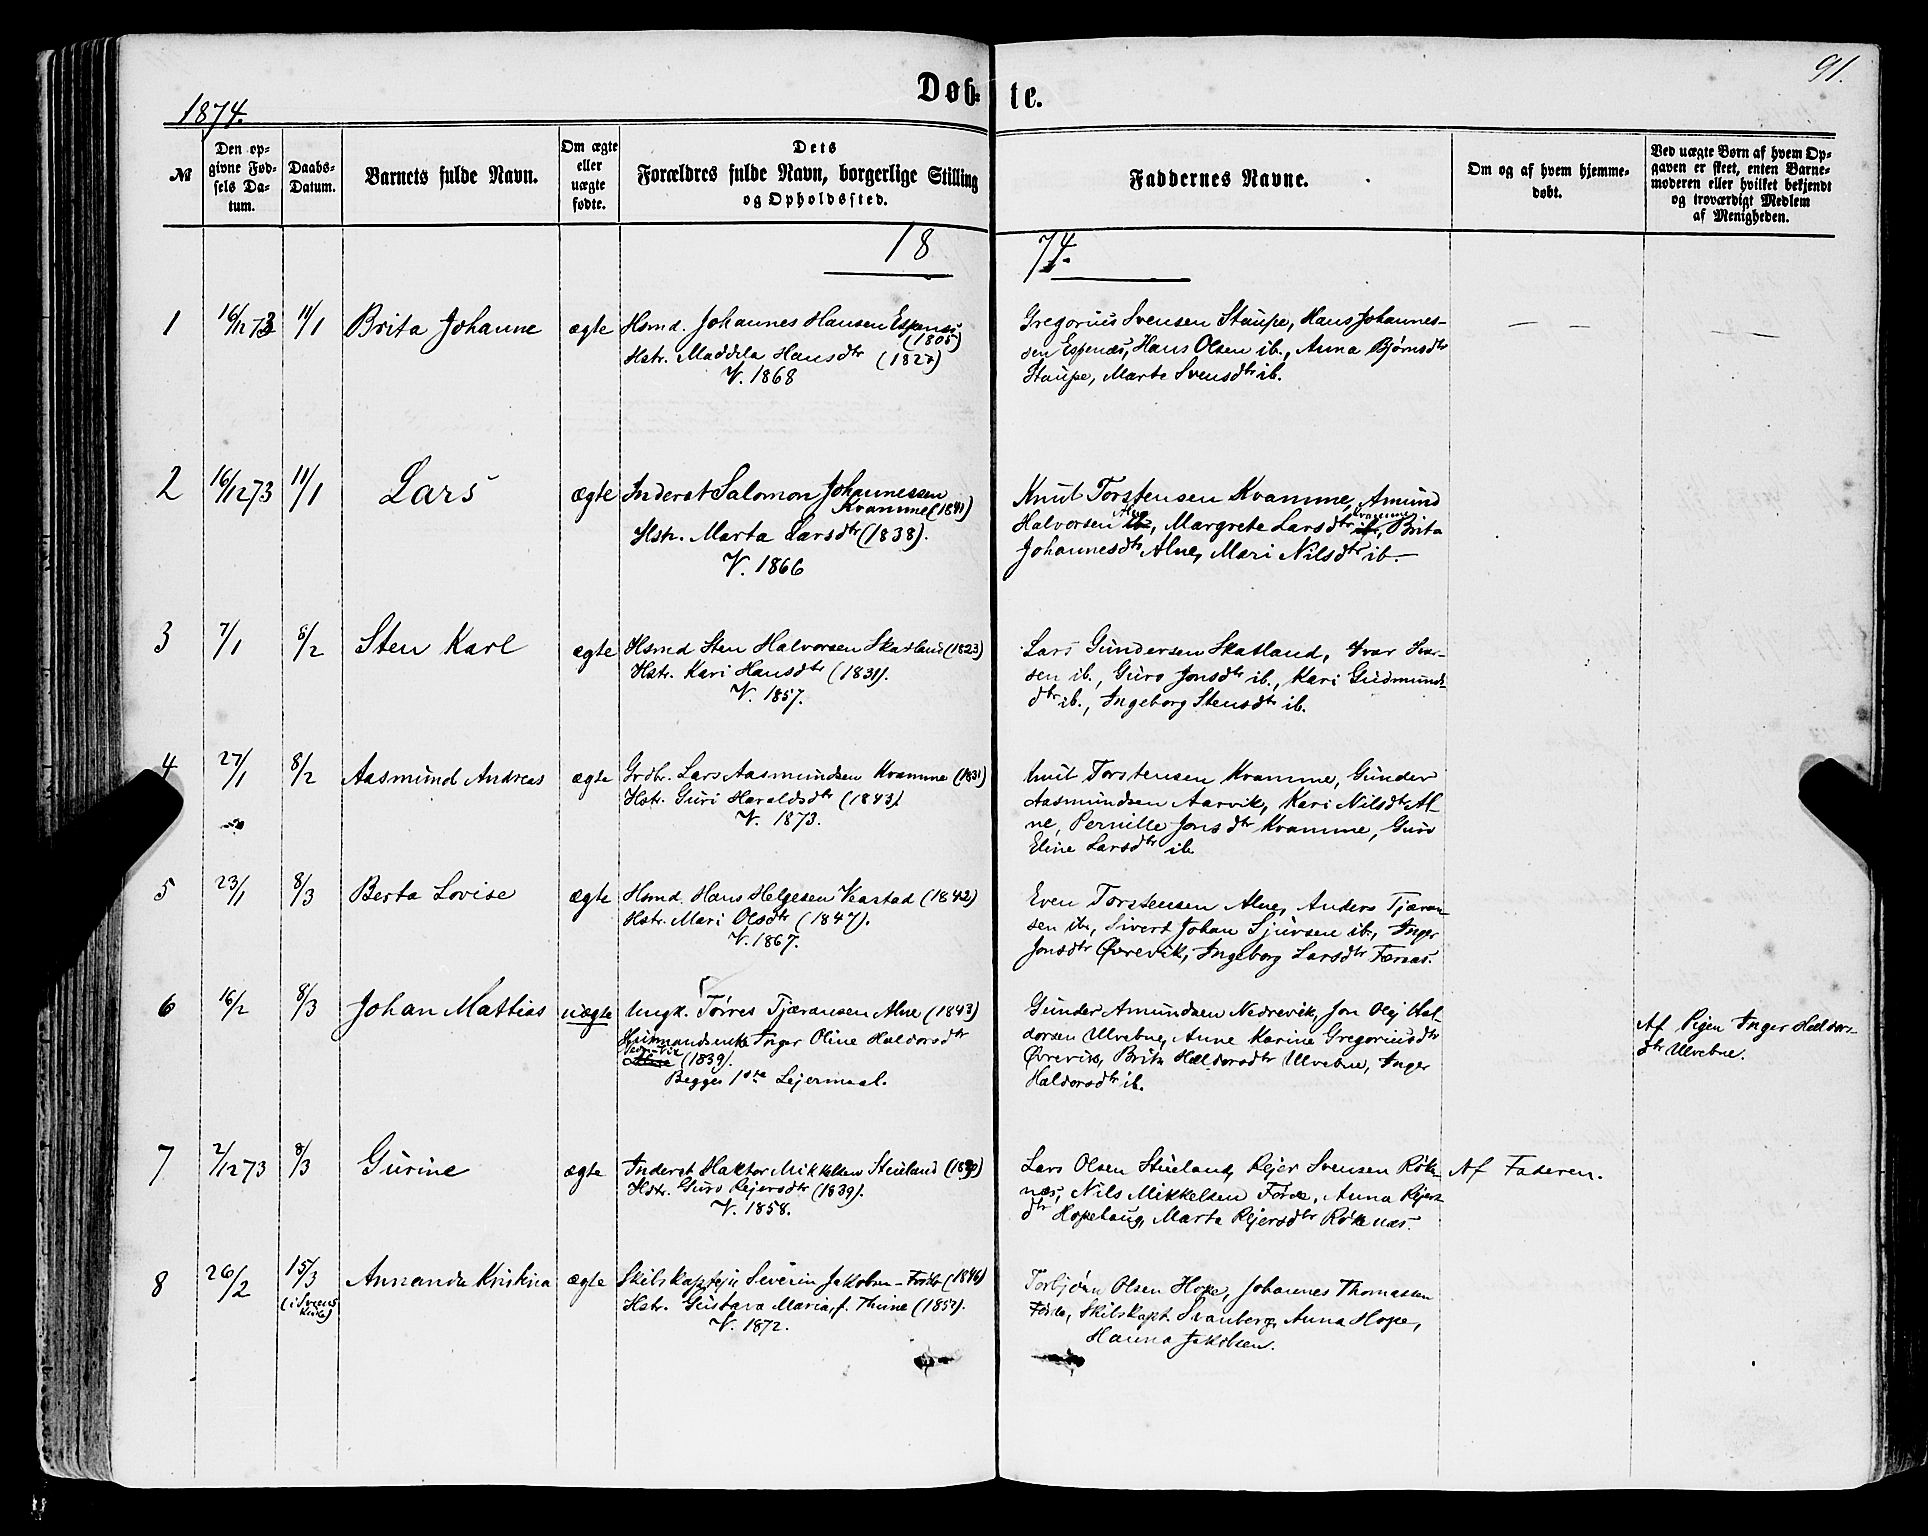 91.
Døb-te.
1874.
№
Den op-
givne Fød-
sels Da-
tum.
Daabs-
Datum.
Barnets fulde Navn.
Om ægte
eller
uægte
fødte.
Dets
Forældres fulde Navn, borgerlige Stilling
og Opholdssted.
Faddernes Navne.
Om og af hvem hjemme-
døbt.
Ved uægte Børn af hvem Op-
gaven er skeet, enten Barne-
moderen eller hvilket bekjendt
og troværdigt Medlem
af Menigheden.
1874.
1
16/12 73
11/1
Brita Johanne
ægte
Hsmd. Johannes Hansen Espenæs
(1805)
Hstr. Maddela Hansdtr (1827)
V. 1868
Gregorius Svensen Staupe, Hans Johannes-
sen Espenæs, Hans Olsen ib., Anna Bjørnsdtr
Staupe, Marte Svensdtr ib.
— —
— —
2
16/12 73
11/1
Lars
ægte
Inderst Salomon Johannessen
Kvamme (1841)
Hstr. Marta Larsdtr (1838).
V. 1866
Knut Torstensen Kvamme, Amund
Halvorsen Alne, Margrete Larsdtr Kvamme, Brita
Johannesdtr Alne, Mari Nilsdtr ib.
3
7/1
8/2
Sten Karl
ægte
Hsmd Sten Halvorsen Skatland (1823)
Hstr. Kari Hansdtr (1831).
V. 1857.
Lars Gundersen Skatland, Ivar Ivar-
sen ib., Guro Jonsdtr ib., Kari Gudmunds-
dtr ib., Ingeborg Stensdtr ib.
4
27/1
8/2
Aasmund Andreas
ægte
Grdbr. Lars Aasmundsen Kvamme (1831)
Hstr. Guri Haraldsdtr (1843)
V. 1873.
Knut Torstensen Kvamme, Gunder
Aasmundsen Aarvik, Kari Nilsdtr Al-
ne, Pernille Jonsdtr Kvamme, Guro
Eline Larsdtr ib.
5
23/1
8/3
Berta Lovise
ægte
Hsmd. Hans Helgesen Veastad (1842)
Hstr. Mari Olsdtr (1847).
V. 1867.
Even Torstensen Alne, Anders Tjæran-
sen ib., Sivert Johan Sjursen ib., Inger
Jonsdtr Øvrevik, Ingeborg Larsdtr Færaas.
6
16/2
8/3
Johan Mattias
uægte
Ungk. Tørres Tjæransen Alne (1843)
Husmandsenke Inger Oline Haldorsdtr
(1839).
Begges 1ste Lejermaal.
Gunder Amundsen Nedrevik, Jon Olaj Hal-
dorsen Ulvebne, Anne Karine Gregoriusdtr
Øvrevik, Brita Haldorsdtr Ulvebne, Inger
Haldorsdtr ib.
Af Pigen Inger Haldors-
dtr Ulvebne.
7
2/12 73
8/3
Gurine
ægte
Inderst Haktor Mikkelsen Stueland
Hstr. Guro Rejersdtr (1839).
V. 1858.
Lars Olsen Stueland, Rejer Svensen Røk-
næs, Nils Mikkelsen Førde, Anna Rejers-
dtr Hopelaug, Marta Rejersdtr Røknæs.
Af Faderen.
8
26/2
15/3
Annanda Kristina
ægte
Skibskaptejn Severin Jakobsen (1846)
Hstr. Gustava Maria, f. Thime
V. 1872.
Torbjørn Olsen Hope, Johannes Thomassen
Førde, Skibskapt. Svanberg, Anna Hope,
Hanna Jakobsen.